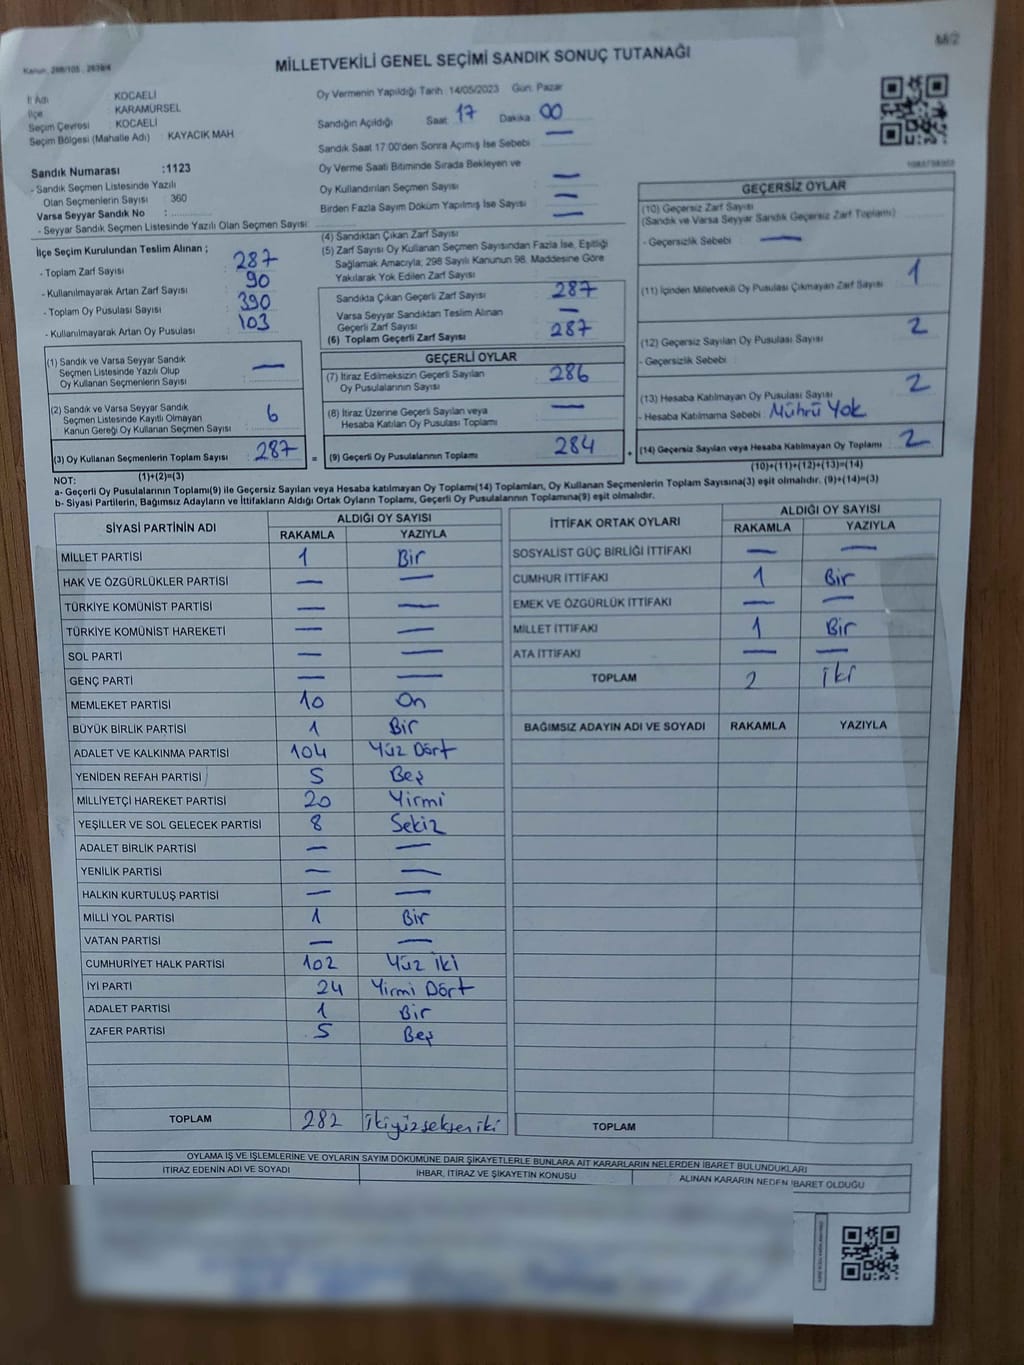 Kanun: 298/105 , 2839/4
M/2
MİLLETVEKİLİ GENEL SEÇİMİ SANDIK SONUÇ TUTANAĞI
İl Adı : KOCAELİ
İlçe : KARAMÜRSEL
Seçim Çevresi : KOCAELİ
Seçim Bölgesi (Mahalle Adı) : KAYACIK MAH
Sandık Numarası :1123
- Sandık Seçmen Listesinde Yazılı
Olan Seçmenlerin Sayısı : 360
Varsa Seyyar Sandık No :
- Seyyar Sandık Seçmen Listesinde Yazılı Olan Seçmen Sayısı:
Oy Vermenin Yapıldığı Tarih : 14/05/2023 Gün: Pazar
Sandığın Açıldığı Saat : 17 Dakika : 00
Sandık Saat 17:00'den Sonra Açımış İse Sebebi : —
Oy Verme Saati Bitiminde Sırada Bekleyen ve
Oy Kullandırılan Seçmen Sayısı : —
Birden Fazla Sayım Döküm Yapılmış İse Sayısı : —
İlçe Seçim Kurulundan Teslim Alınan ;
- Toplam Zarf Sayısı : 287
- Kullanılmayarak Artan Zarf Sayısı : 90
- Toplam Oy Pusulası Sayısı : 390
- Kullanılmayarak Artan Oy Pusulası : 103
(1) Sandık ve Varsa Seyyar Sandık
Seçmen Listesinde Yazılı Olup
Oy Kullanan Seçmenlerin Sayısı : —
(2) Sandık ve Varsa Seyyar Sandık
Seçmen Listesinde Kayıtlı Olmayan
Kanun Gereği Oy Kullanan Seçmen Sayısı : 6
(3) Oy Kullanan Seçmenlerin Toplam Sayısı : 287
(1)+(2)=(3)
(4) Sandıktan Çıkan Zarf Sayısı : —
(5) Zarf Sayısı Oy Kullanan Seçmen Sayısından Fazla İse, Eşitliği
Sağlamak Amacıyla; 298 Sayılı Kanunun 98. Maddesine Göre
Yakılarak Yok Edilen Zarf Sayısı :
Sandıkta Çıkan Geçerli Zarf Sayısı : 287
Varsa Seyyar Sandıktan Teslim Alınan
Geçerli Zarf Sayısı : —
(6) Toplam Geçerli Zarf Sayısı : 287
GEÇERLİ OYLAR
(7) İtiraz Edilmeksizin Geçerli Sayılan
Oy Pusulalarının Sayısı : 286
(8) İtiraz Üzerine Geçerli Sayılan veya
Hesaba Katılan Oy Pusulası Toplamı : —
= (9) Geçerli Oy Pusulalarının Toplamı : 284 +
GEÇERSİZ OYLAR
(10) Geçersiz Zarf Sayısı
(Sandık ve Varsa Seyyar Sandık Geçersiz Zarf Toplamı) :
- Geçersizlik Sebebi : —
(11) İçinden Milletvekili Oy Pusulası Çıkmayan Zarf Sayısı : 1
(12) Geçersiz Sayılan Oy Pusulası Sayısı : 2
- Geçersizlik Sebebi :
(13) Hesaba Katılmayan Oy Pusulası Sayısı : 2
- Hesaba Katılmama Sebebi : Mührü Yok
(14) Geçersiz Sayılan veya Hesaba Katılmayan Oy Toplamı : 2
(10)+(11)+(12)+(13)=(14)
NOT:
a- Geçerli Oy Pusulalarının Toplamı(9) ile Geçersiz Sayılan veya Hesaba katılmayan Oy Toplamı(14) Toplamları, Oy Kullanan Seçmenlerin Toplam Sayısına(3) eşit olmalıdır. (9)+(14)=(3)
b- Siyasi Partilerin, Bağımsız Adayların ve İttifakların Aldığı Ortak Oyların Toplamı, Geçerli Oy Pusulalarının Toplamına(9) eşit olmalıdır.
SİYASİ PARTİNİN ADI ALDIĞI OY SAYISI
RAKAMLA YAZIYLA
MİLLET PARTİSİ 1 Bir
HAK VE ÖZGÜRLÜKLER PARTİSİ — —
TÜRKİYE KOMÜNİST PARTİSİ — —
TÜRKİYE KOMÜNİST HAREKETİ — —
SOL PARTİ — —
GENÇ PARTİ — —
MEMLEKET PARTİSİ 10 On
BÜYÜK BİRLİK PARTİSİ 1 Bir
ADALET VE KALKINMA PARTİSİ 104 Yüz Dört
YENİDEN REFAH PARTİSİ 5 Beş
MİLLİYETÇİ HAREKET PARTİSİ 20 Yirmi
YEŞİLLER VE SOL GELECEK PARTİSİ 8 Sekiz
ADALET BİRLİK PARTİSİ — —
YENİLİK PARTİSİ — —
HALKIN KURTULUŞ PARTİSİ — —
MİLLİ YOL PARTİSİ 1 Bir
VATAN PARTİSİ — —
CUMHURİYET HALK PARTİSİ 102 Yüz İki
İYİ PARTİ 24 Yirmi Dört
ADALET PARTİSİ 1 Bir
ZAFER PARTİSİ 5 Beş
TOPLAM 282 İkiyüzseksen iki
İTTİFAK ORTAK OYLARI ALDIĞI OY SAYISI
RAKAMLA YAZIYLA
SOSYALİST GÜÇ BİRLİĞİ İTTİFAKI — —
CUMHUR İTTİFAKI 1 Bir
EMEK VE ÖZGÜRLÜK İTTİFAKI — —
MİLLET İTTİFAKI 1 Bir
ATA İTTİFAKI — —
TOPLAM 2 İki
BAĞIMSIZ ADAYIN ADI VE SOYADI RAKAMLA YAZIYLA
TOPLAM
OYLAMA İŞ VE İŞLEMLERİNE VE OYLARIN SAYIM DÖKÜMÜNE DAİR ŞİKAYETLERLE BUNLARA AİT KARARLARIN NELERDEN İBARET BULUNDUKLARI
İTİRAZ EDENİN ADI VE SOYADI İHBAR, İTİRAZ VE ŞİKAYETİN KONUSU ALINAN KARARIN NEDEN İBARET OLDUĞU